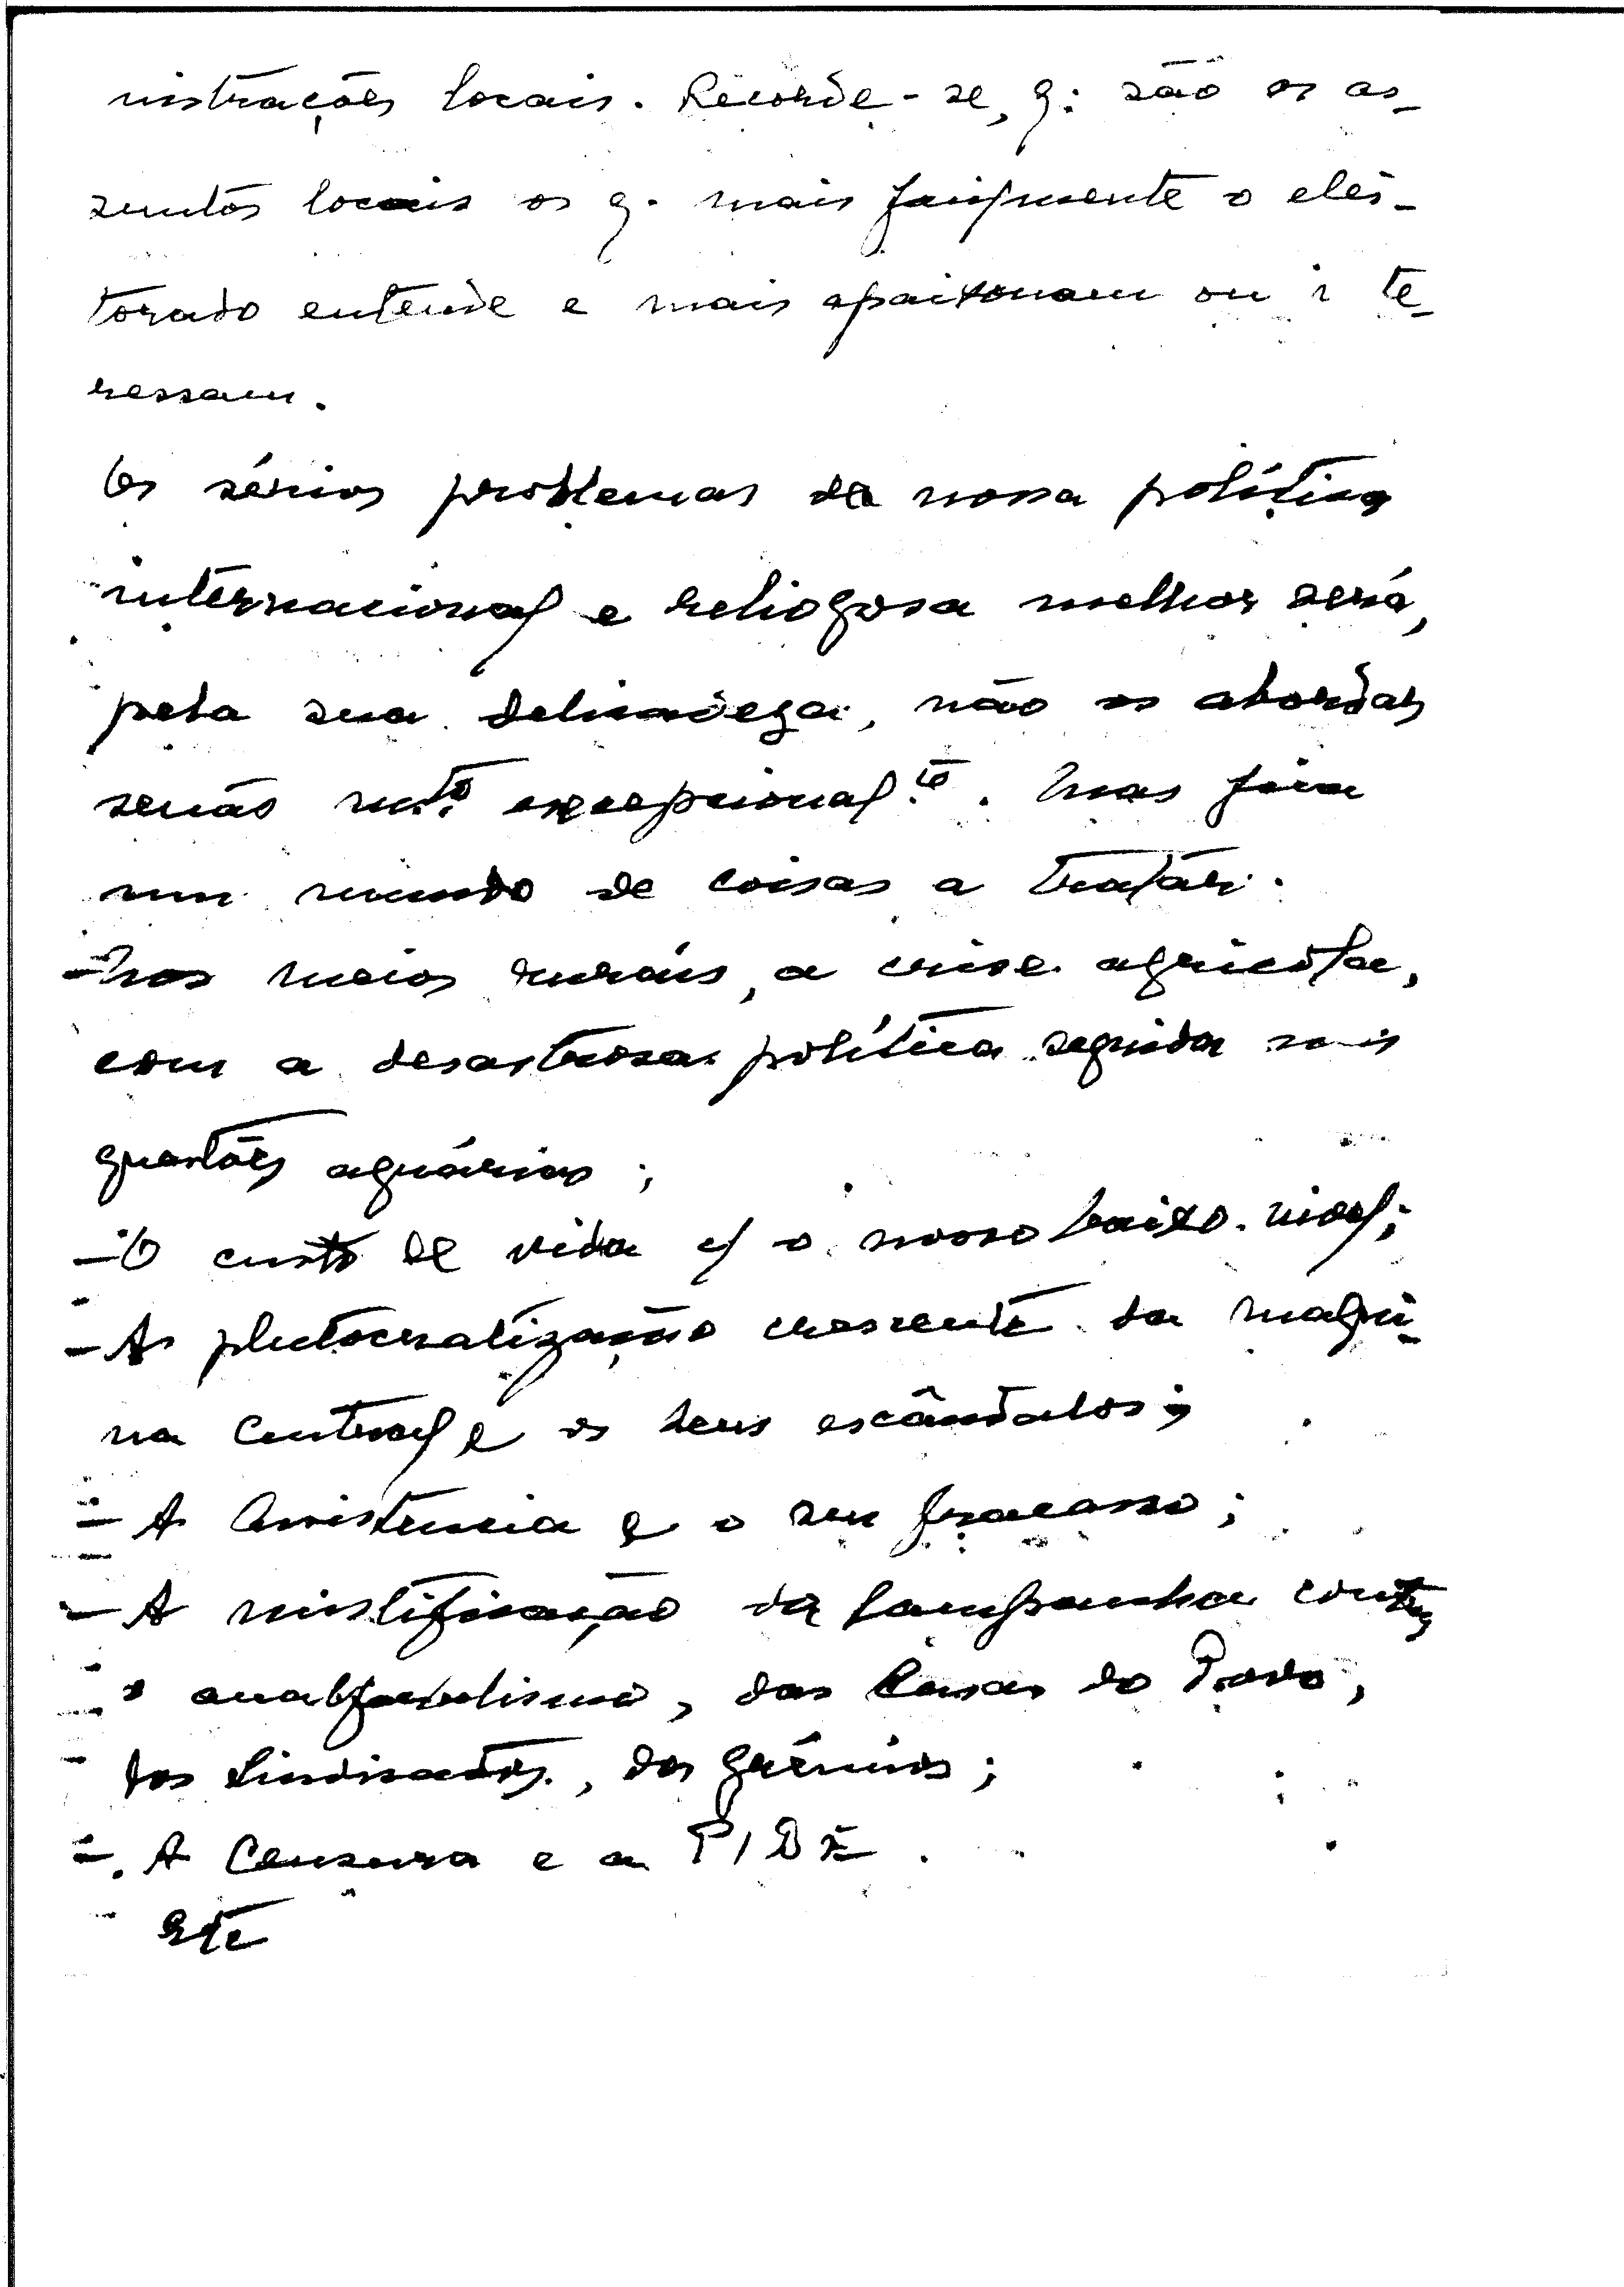 nistrações locais. Recorde-se, q: são os as-
suntos locais os q. mais facilmente o elei-
torado entende e mais apaixonam ou i te-
ressam.
Os sérios problemas da nossa política
internacional e religiosa melhor será,
pela sua delicadeza, não os abordar
senão mtº excepcional.te. Mas fica
um mundo de coisas a tratar.
- Nos meios rurais, a crise agricola,
com a desastrosa politica seguida nas
questões agrárias;
- O custo de vida c/ o nosso baixo nivel;
- A plutocratização crescente da maqui-
na Central e os seus escândalos;
- A Assistencia e o seu fracasso;
- A mistificação da Campanha contra
o analfabetismo, das Casas do Povo,
dos Sindicatos, dos Grémios;
- A Censura e a PIDE.
Etc